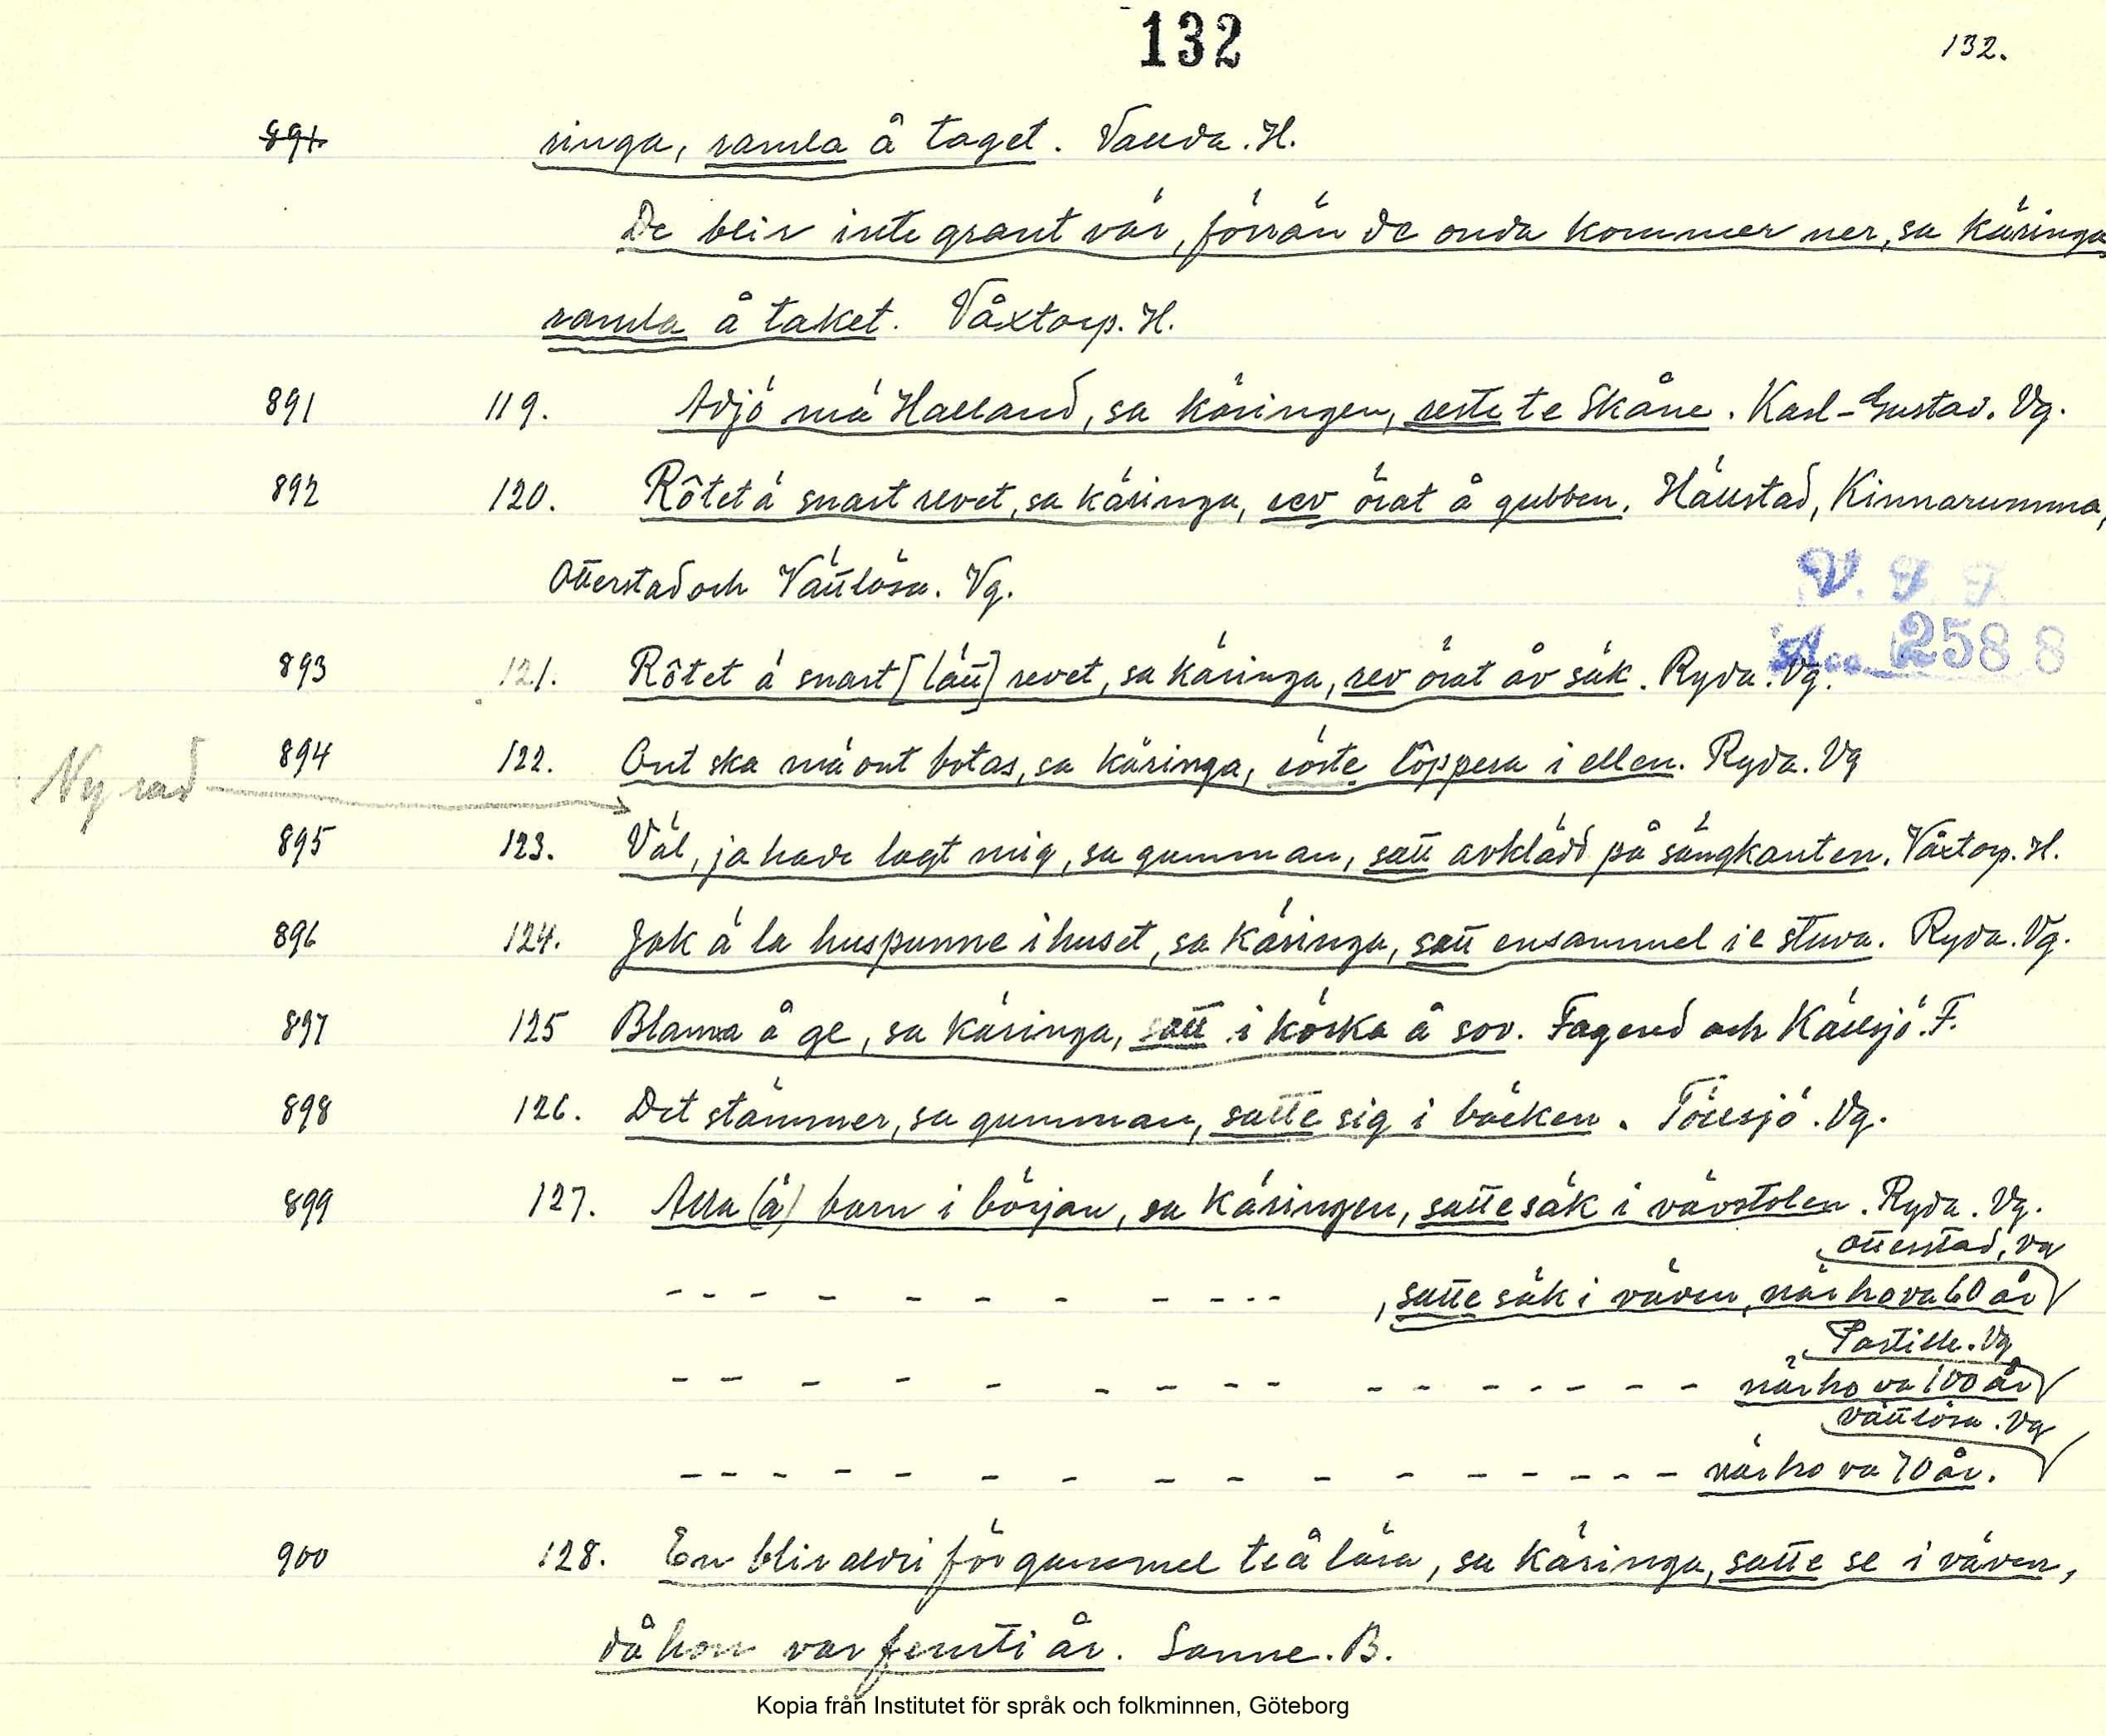 132
132.
891. ringa, ramla å taget. Valida. H.
De blir inte grant vär, förrän de onda kommer ner, sa käringa,
ramla å taket. Våxtorp. H.
891 119. Adjö mä Halland, sa käringen, reste te Skåne. Karl-Gustav. Vg.
892 120. Rôtet ä snart revet, sa käringa, rev örat å gubben. Hällstad, Kinnarumma,
Otterstad och Vättlösa. Vg.
V. F. F.
Acc. 2588
893 121. Rôtet ä snart [lätt] revet, sa käringa, rev örat åv säk. Ryda. Vg.
894 122. Ont ska mä ont botas, sa käringa, röste lôppera i ellen. Ryda. Vg
Ny rad
895 123. Väl, ja hade lagt mig, sa gumman, satt avklädd på sängkanten. Våxtorp. H.
896 124. Jak ä la huspunne i huset, sa käringa, satt ensammel i e stuva. Ryda. Vg.
897 125 Blanna å ge, sa käringa, satt i körka å sov. Fagered och Källsjö. F.
898 126. Det stämmer, sa gumman, satte sig i bäcken. Töllsjö. Vg.
899 127. Alla (ä) barn i början, sa käringen, satte säk i vävstolen. Ryda. Vg.
Otterstad, Vg
- - - - - - - - - - - , satte säk i väven, när ho va 60 år
Partille. Vg
- - - - - - - - - - - - - - - - - när ho va 100 år
Vättlösa. Vg
- - - - - - - - - - - - - - - - - när ho va 70 år.
900 128. En blir aldri för gammel te å lära, sa käringa, satte se i väven,
då hon var femti år. Sanne. B.
Kopia från Institutet för språk och folkminnen, Göteborg